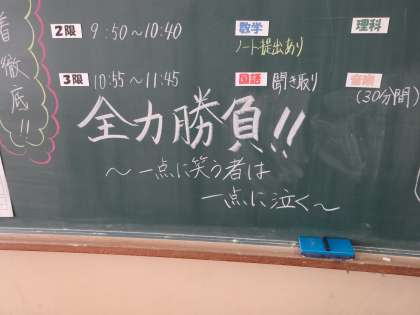 着徹底!!
2限 9:50～10:40 数学 理科
ノート提出あり
3限 10:55～11:45 国語 聞き取り
(30分間)
全力勝負!!
～一点に笑う者は
一点に泣く～